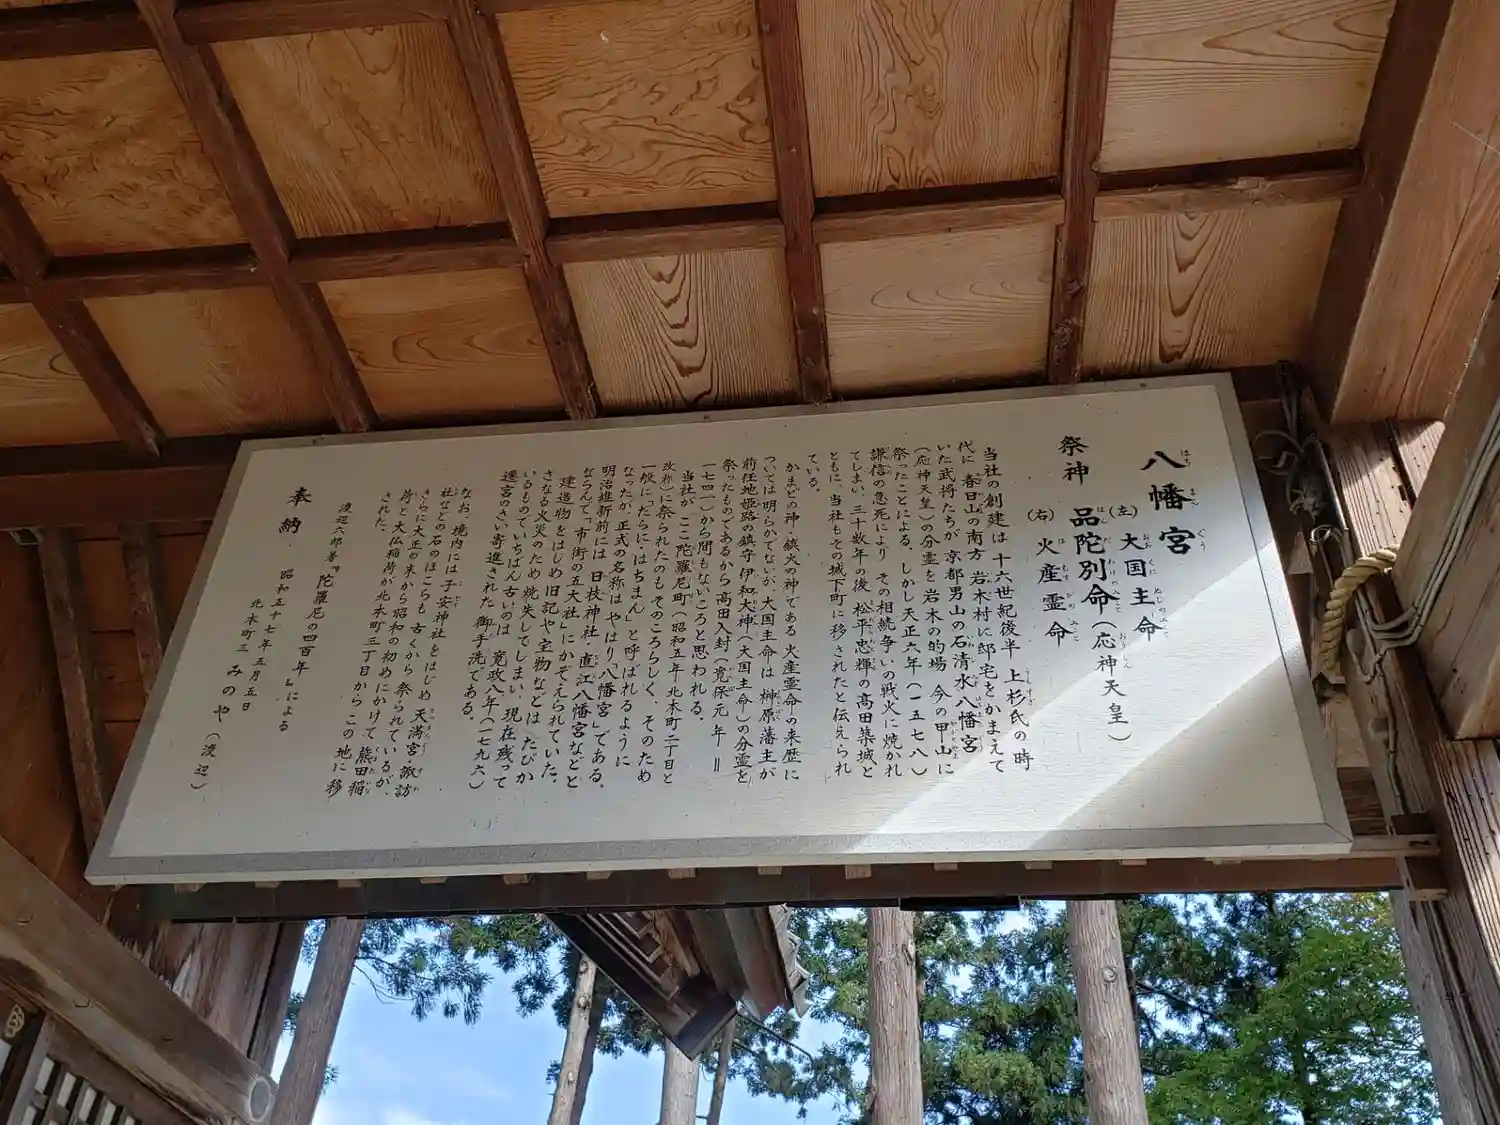 八幡宮
祭神 品陀別命(応神天皇)
(左)大国主命
(右)火産霊命
当社の創建は 十六世紀後半 上杉氏の時
代に 春日山の南方 岩木村に邸宅をかまえて
いた武将たちが 京都男山の石清水八幡宮
(応神天皇)の分霊を岩木の的場 今の甲山に
祭ったことによる。しかし天正六年(一五七八)
謙信の急死により その相続争いの戦火に焼かれ
てしまい、三十数年の後 松平忠輝の高田築城と
ともに、当社もその城下町に移されたと伝えられ
ている。
かまどの神・鎮火の神である火産霊命の来歴に
ついては明らかでないが、大国主命は 榊原藩主が
前任地姫路の鎮守 伊和大神(大国主命)の分霊を
祭ったものであるから高田入封(寛保元年=
一七四一)から間もないころと思われる。
当社が ここ 陀羅尼町(昭和五年 北本町二丁目と
改称)に祭られたのも そのころらしく、そのため
一般に「だらに・はちまん」と呼ばれるように
なったが、正式の名称は やはり「八幡宮」である。
明治維新前には 日枝神社・直江八幡宮などと
ならんで、「市街の五大社」にかぞえられていた。
建造物をはじめ 旧記や宝物などは たびか
さなる火災のため 焼失してしまい、現在残って
いるもので、いちばん古いのは 寛政八年(一七九六)
遷宮のさい寄進された 御手洗である。
なお、境内には 子安神社をはじめ 天満宮・諏訪
社などの石のほこらも 古くから 祭られているが、
さらに大正の末から昭和の初めにかけて 熊田稲
荷と大仏稲荷が北本町三丁目から この地に移
された。
渡辺六郎著『陀羅尼の四百年』による
昭和五十七年五月五日
奉納 北本町三 みのや(渡辺)